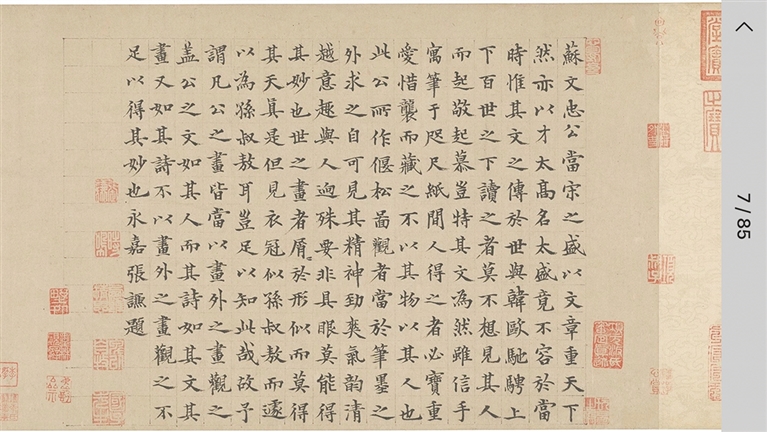 蘇文忠公當宋之盛以文章重天下
然亦以才太高名太盛竟不容於當
時惟其文之傳於世與韓歐馳騁上
下百世之下讀之者莫不想見其人
而起敬起慕豈特其文為然雖信手
寓筆于咫尺紙間人得之者必寶重
愛惜襲而藏之不以其物以其人也
此公所作偃松啚觀者當於筆墨之
外求之自可見其精神勁爽氣韵清
越意趣與人逈殊要非具眼莫能得
其妙也世之畫者屑〻於形似而莫得
其天真是但見衣冠似孫叔敖而遽
以為孫叔敖耳豈足以知此哉故予
謂凡公之畫皆當以畫外之畫觀之
盖公之文如其人而其詩如其文其
畫又如其詩不以畫外之畫觀之不
足以得其妙也永嘉張謙題
7/85